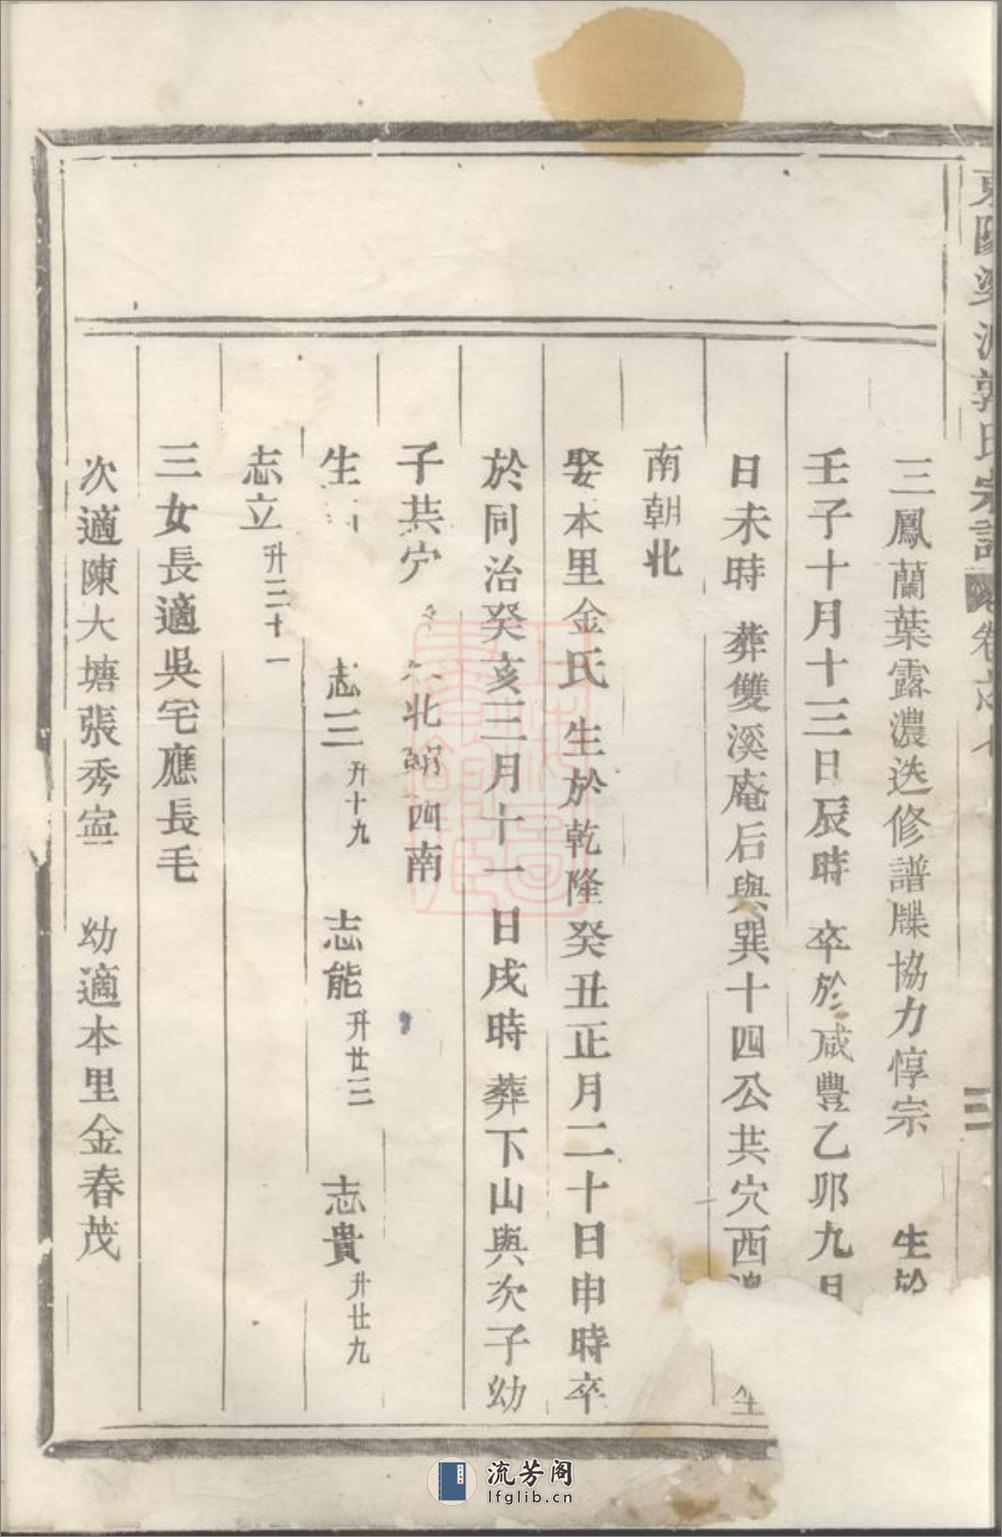 三鳳蘭葉露濃迭修譜牒協力惇宗 生於
壬子十月十三日辰時 卒於咸豐乙卯九月
日未時 葬雙溪庵后與巽十四公共穴西 坐
南朝北
娶本里金氏 生於乾隆癸丑正月二十日申時卒
於同治癸亥三月十一日戌時 葬下山與次子幼
子共穴 北朝西南
生 志三 升十九 志能 升廿三 志貴 升廿九
志立 升三十一
三女長適吳宅應長毛
次適陳大塘張秀寍 幼適本里金春茂
郭氏宗譜 卷 三
流芳阁
lfglib.cn